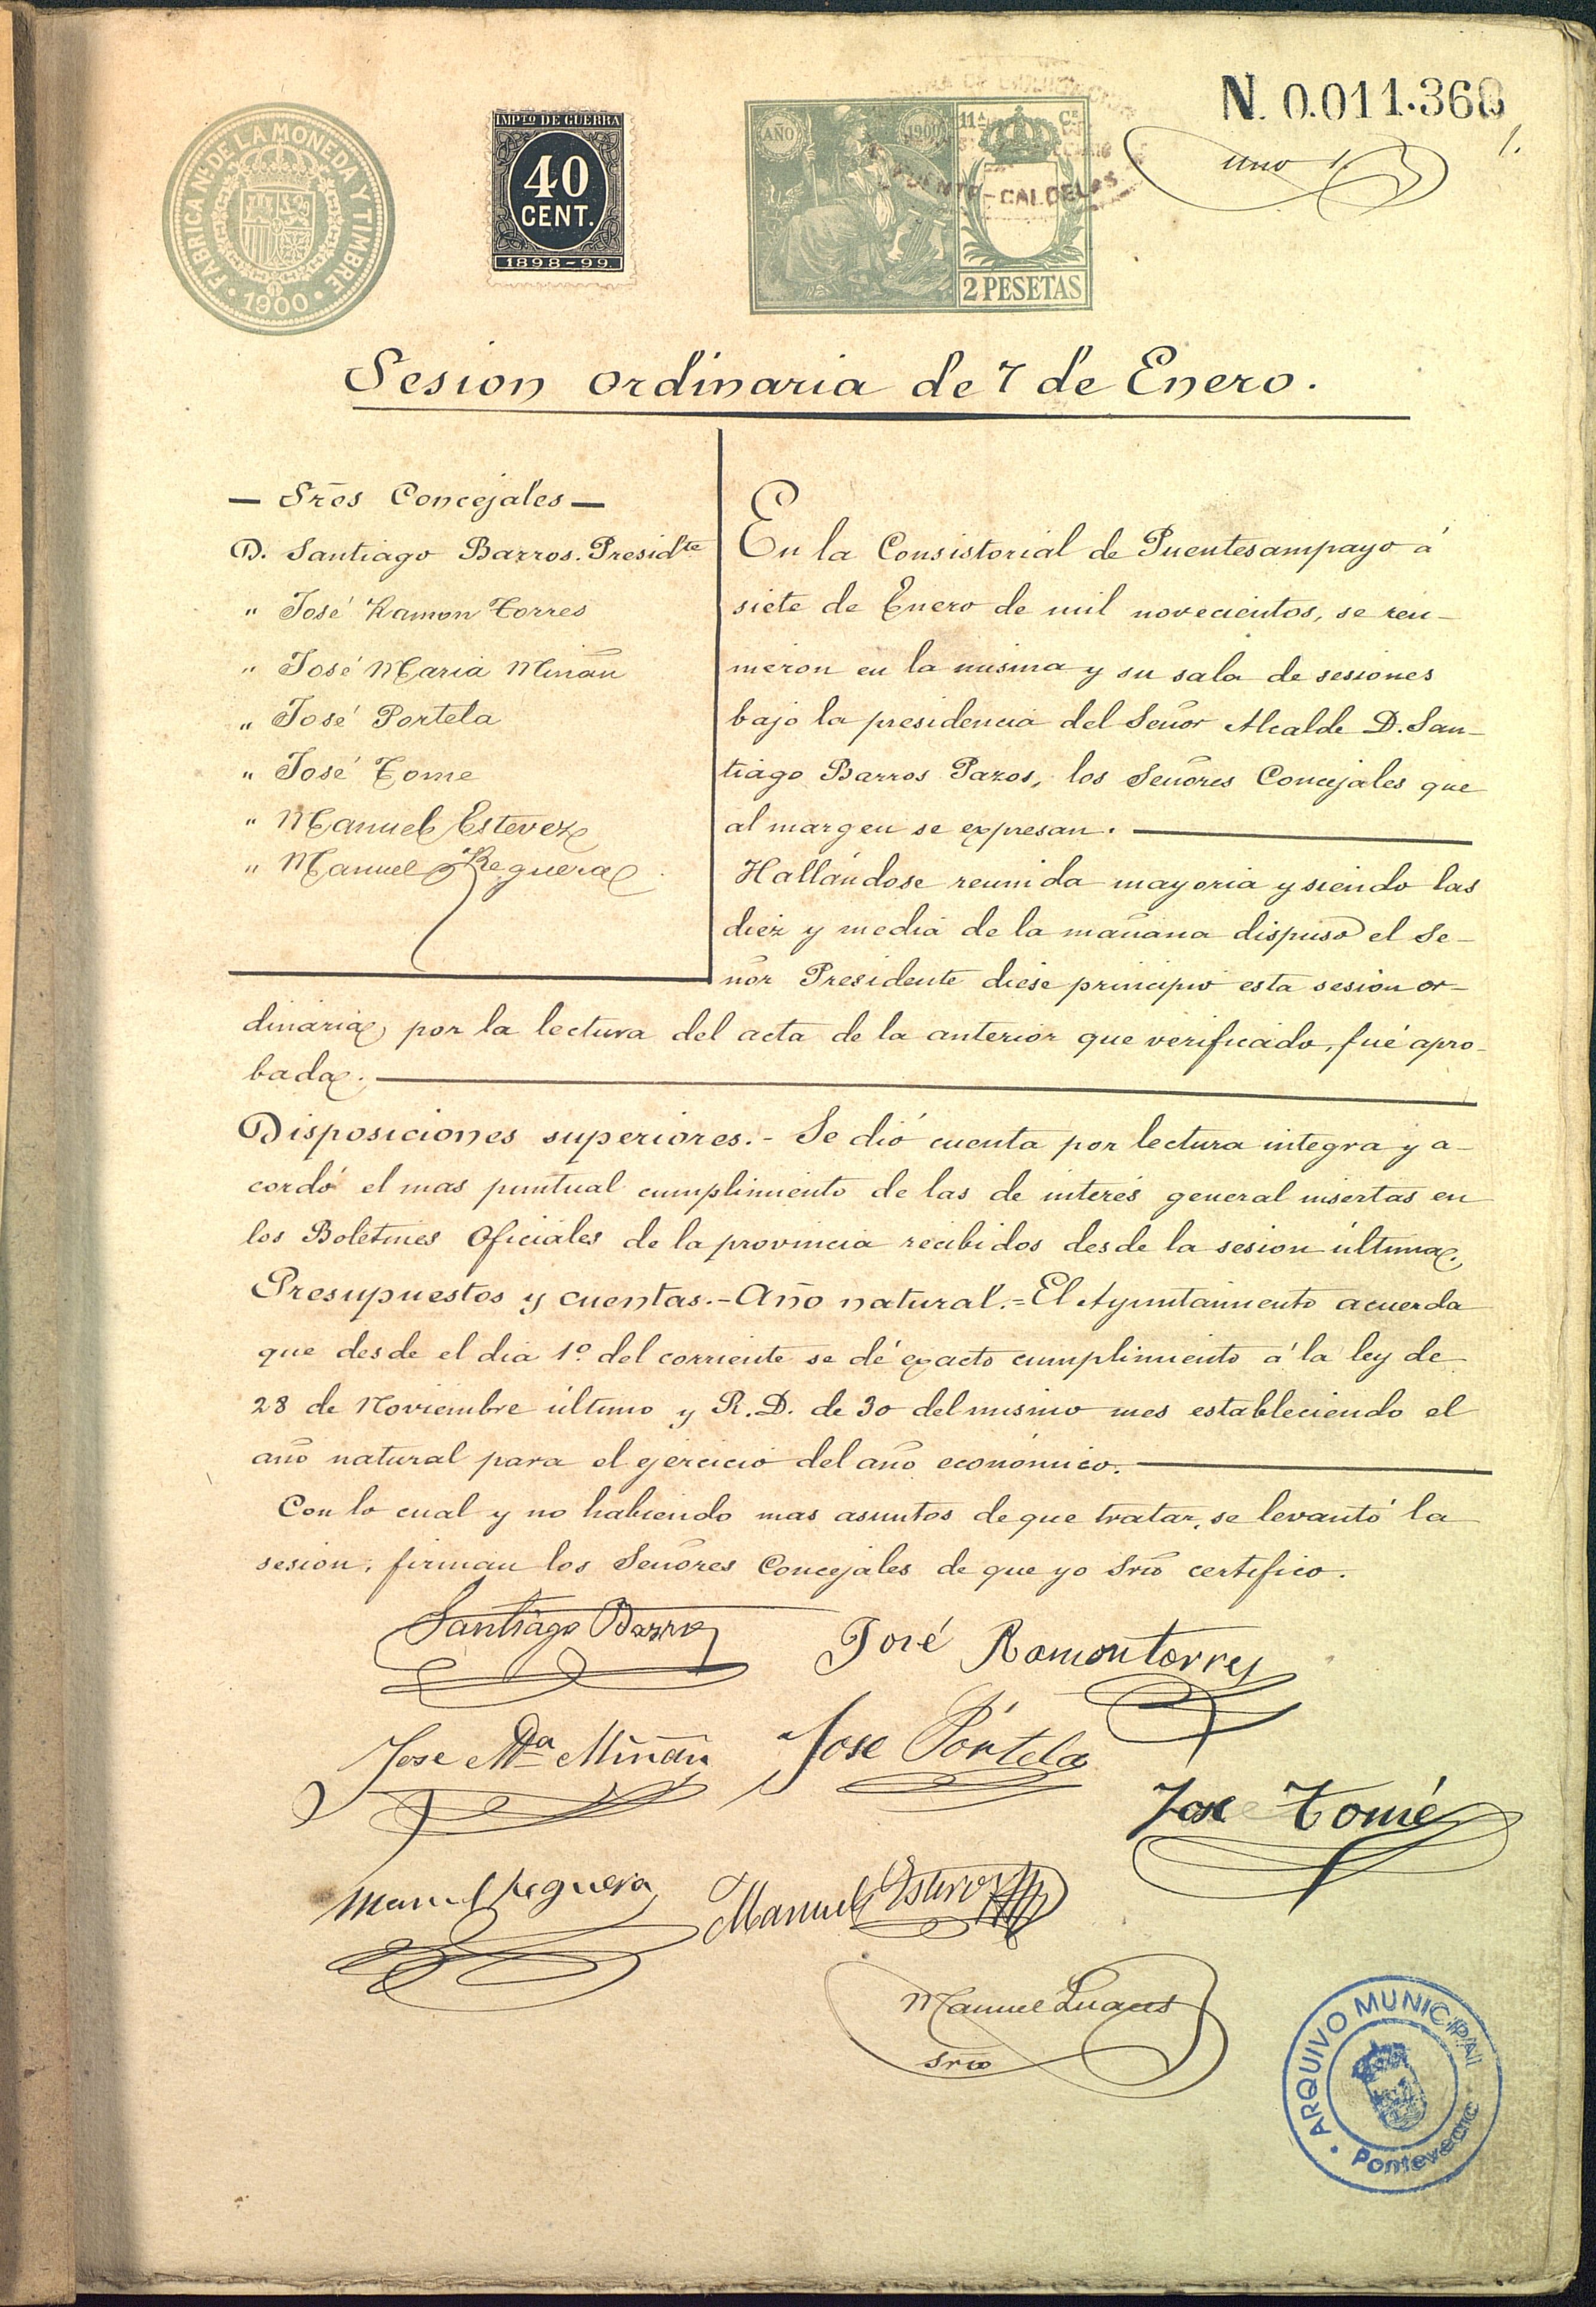 FABRICA Nal DE LA MONEDA Y TIMBRE
1900
IMPTO DE GUERRA
40
CENT.
1898-99.
AÑO
1900
11ª
2 PESETAS
PUENTE-CALDELAS
N. 0.011.360
uno 1.
1.
Sesion ordinaria de 7 de Enero.
— Sres Concejales —
D. Santiago Barros. Presidte
" José Ramon Torres
" José Maria Miñán
" José Portela
" José Tome
" Manuel Estevez
" Manuel Reguera
En la Consistorial de Puentesampayo á
siete de Enero de mil novecientos, se reu-
nieron en la misma y su sala de sesiones
bajo la presidencia del Señor Alcalde D. San-
tiago Barros Pazos, los Señores Concejales que
al margen se expresan.
Hallándose reunida mayoria y siendo las
diez y media de la mañana dispuso el Se-
ñor Presidente diese principio esta sesion or-
dinaria, por la lectura del acta de la anterior que verificado, fué apro-
bada.
Disposiciones superiores.- Se dió cuenta por lectura integra y a-
cordó el mas puntual cumplimiento de las de interés general insertas en
los Boletines Oficiales de la provincia recibidos desde la sesion última.
Presupuestos y cuentas.- Año natural.= El Ayuntamiento acuerda
que desde el dia 1º del corriente se dé exacto cumplimiento á la ley de
28 de Noviembre último y R.D. de 30 del mismo mes estableciendo el
año natural para el ejercicio del año económico.
Con lo cual y no habiendo mas asuntos de que tratar, se levantó la
sesion, firman los Señores Concejales de que yo Srio certifico.
Santiago Barros
José Ramon Torres
Jose Ma Miñán
Jose Pórtela
Jose Tomé
Manuel Reguera
Manuel Estevez
Manuel
Srio
ARQUIVO MUNICIPAL
Pontevedra